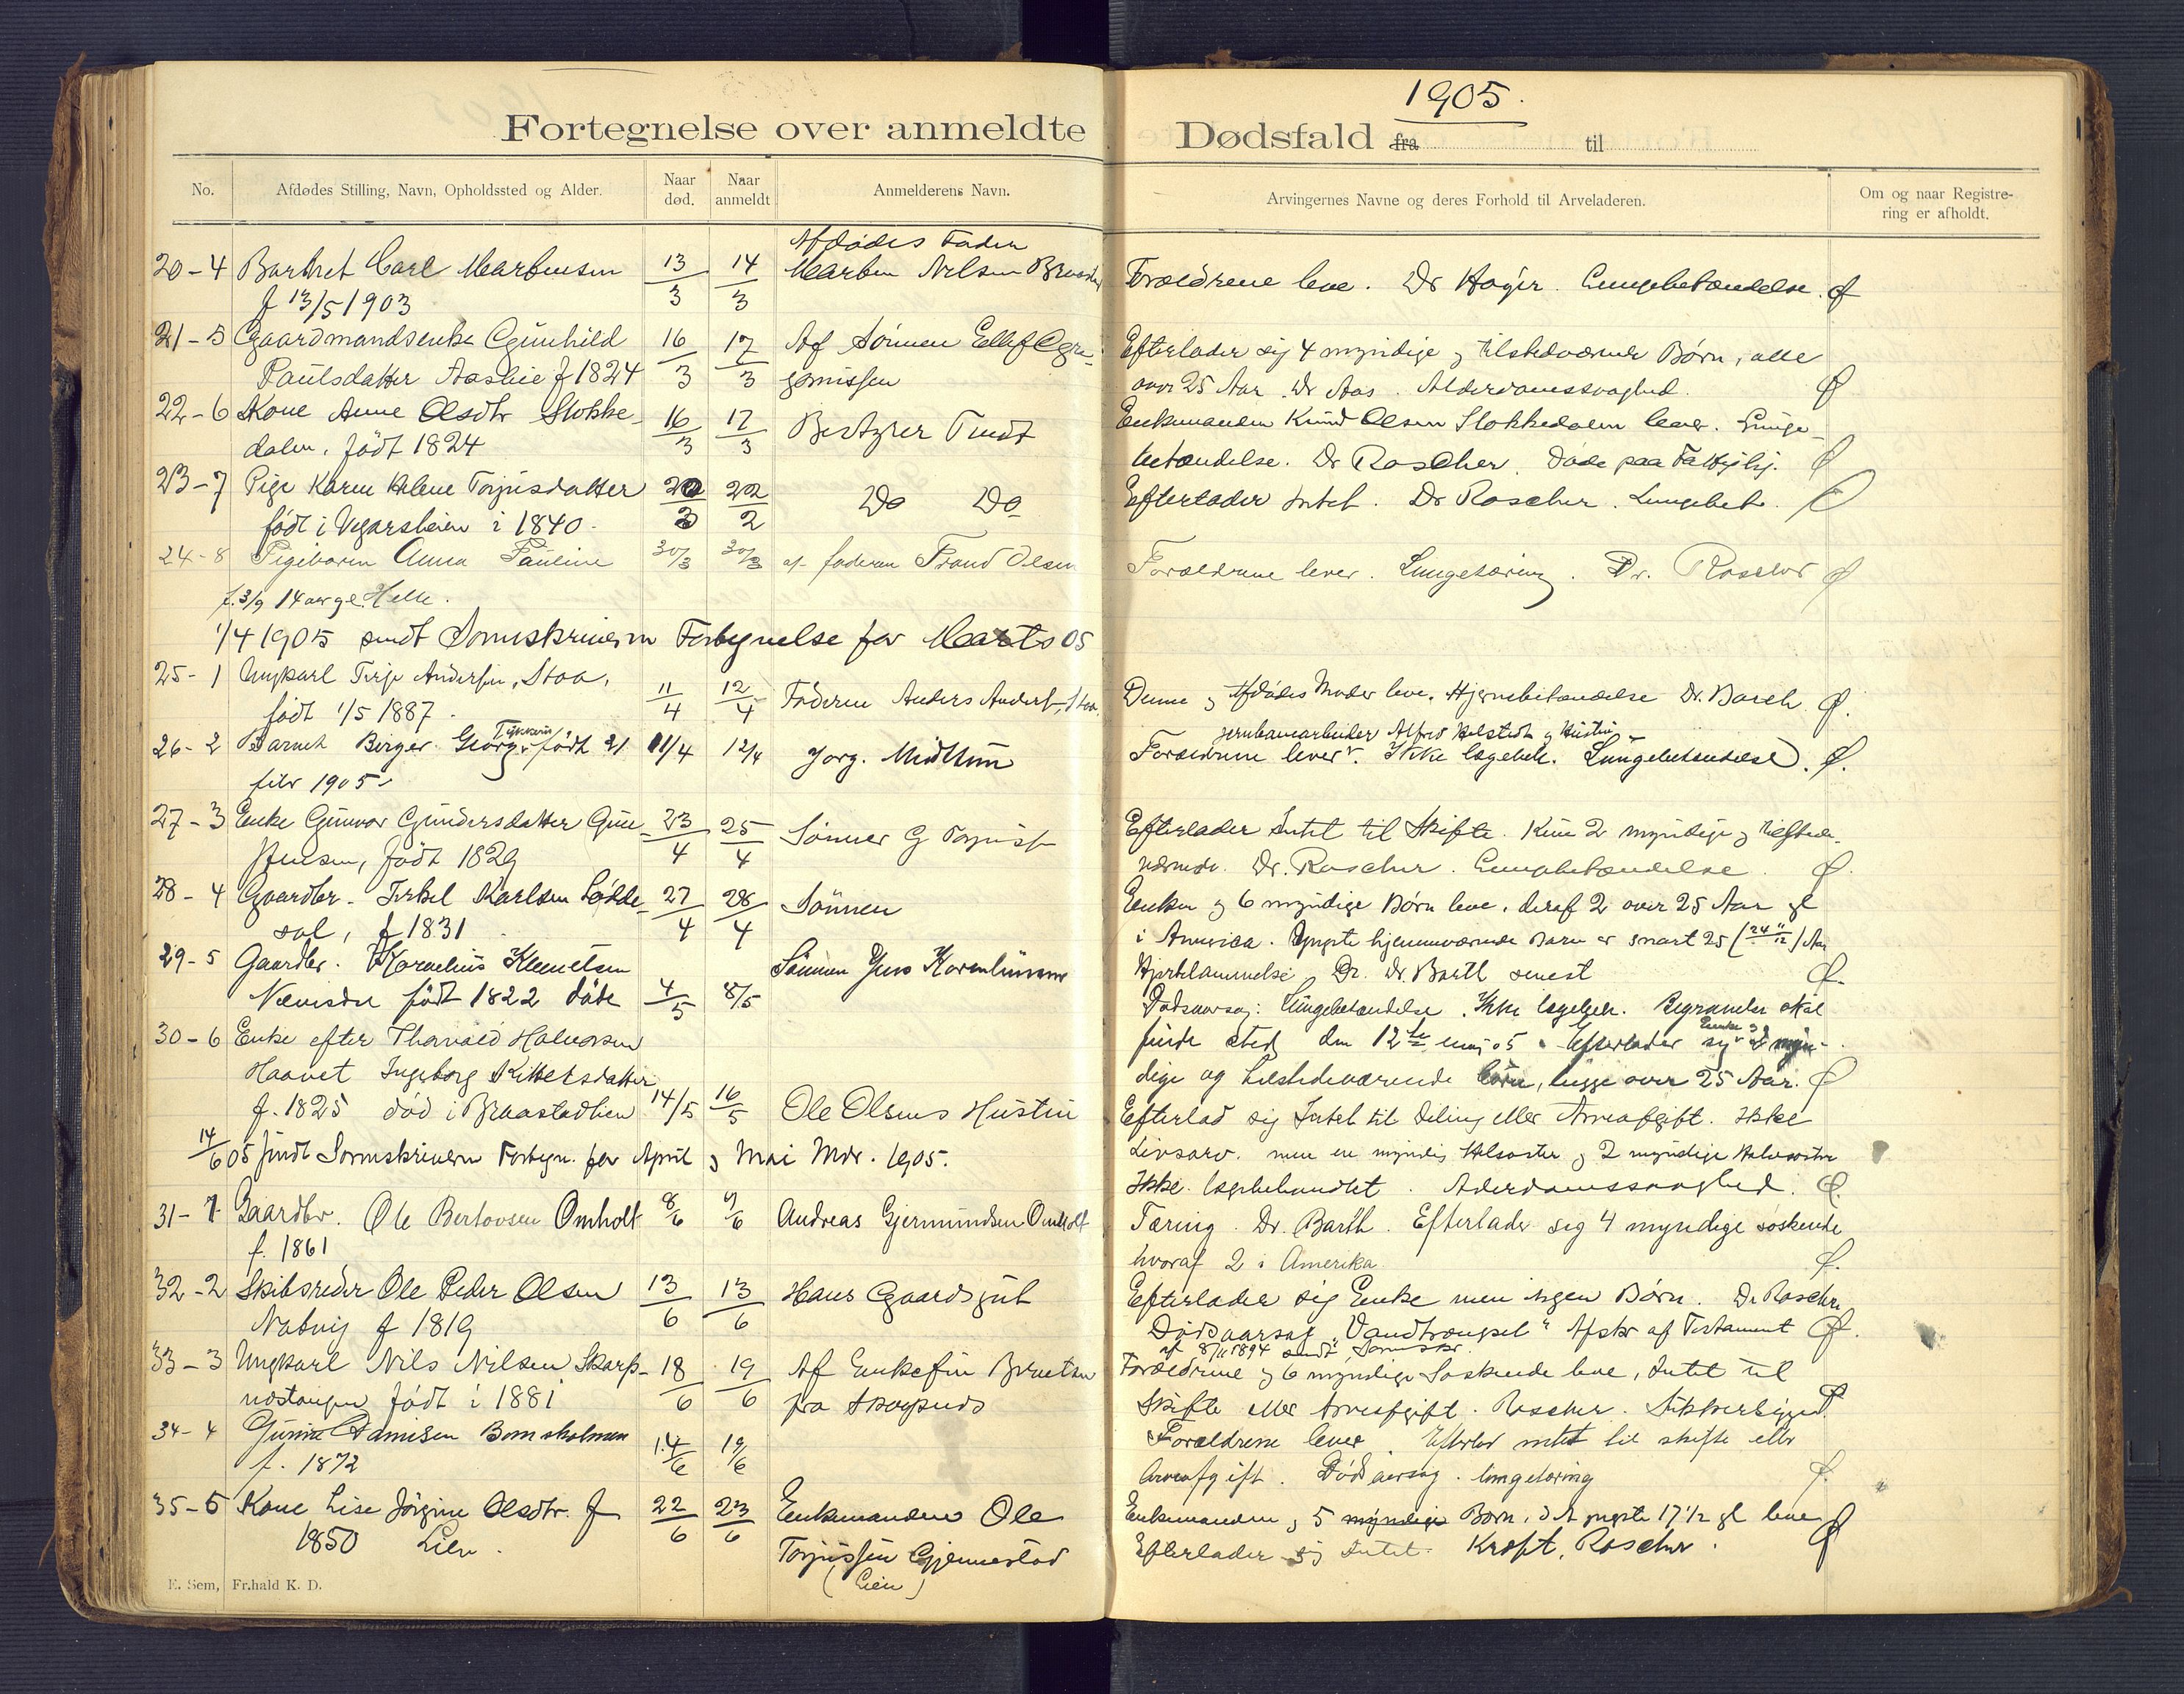 1905.
Fortegnelse over anmeldte Dødsfald fra til
No. Afdødes Stilling, Navn, Opholdssted og Alder. Naar død. Naar anmeldt Anmelderens Navn. Arvingernes Navne og deres Forhold til Arveladeren. Om og naar Registrering er afholdt.
Afdødes Fader
20-4 Barnet Carl Martensen 13/3 14/3 Marten Nelsen
f 13/5 1903
Forældrene leve. Dr Høyer. Lungebetændelse.
21-5 Gaardmandsenke Gunhild 16/3 17/3 Af Sønnen Ellef
Paulsdatter Aaslie f 1824
Efterlader sig 4 myndige og tilstedværende Børn, alle
over 25 Aar. Dr Aas. Alderdomssvaghed.
22-6 Kone Anne Olsdtr Stokke- 16/3 17/3 Tvedt
dalen, født 1824
Enkemanden Knud Olsen Stokkedalen lever. Lunge-
betændelse. Dr Roscher. Døde paa
23-7 Pige Karen Helene Torjusdatter 22/2 Do Do
født i Vegarsheien i 1840.
Efterlader Intet. Dr Roscher. Lungebet.
24-8 Pigebarn Anna Pauline 30/3 30/3 af faderen Olsen
f. 3/9 14 aar gl. Helle.
Forældrene lever. Lungetæring. Dr. Roscher
1/4 1905 sendt Sorenskriveren Fortegnelse for Marts 05
25-1 Ungkarl Terje Andersen, Stoa, 11/4 12/4 Faderen Anders Anders., Stoa.
født 1/5 1887.
Denne og Afdødes Moder leve. Hjernebetændelse Dr. Barth.
26-2 Barnet Birger Georg født 21 11/4 12/4 Jorg. Midttun
febr 1905
jernbanearbeider Alfred og Hustru
Forældrene lever. Ikke lægebeh. Lungebetændelse.
27-3 Enke Gunvor Gundersdatter 23/4 25/4 Sønnen G Torjussen
født 1829
Efterlader Intet til Skifte. Kun 2 myndige og tilstede-
værende. Dr. Roscher. Lungebetændelse.
28-4 Gaardbr. Terkel Karlsen Lødde- 27/4 28/4 Sønnen
søl, f 1831
Enken og 6 myndige Børn leve, deraf 2 over 25 Aar gl
i America. Yngste hjemmeværende Barn er snart 25 (24 11/12) Aar
Hjertelammelse Dr. Barth senest
29-5 Gaardbr. Kornelius Klemetsen Sønnen Jens Korneliussen
født 1822 døde 4/5 8/5
Dødsaarsag: Lungebetændelse. Ikke lægebeh. Begravelse skal
finde sted den 12te mai 05. Efterlader sig Enke og 2 myn-
dige og tilstedeværende børn, begge over 25 Aar.
30-6 Enke efter Tharald Halvorsen
Haavet Ingeborg Kittelsdatter
f. 1825 død i Braastadlien 14/5 16/5 Ole Olsens Hustru
Efterlod sig Intet til Deling eller Arveafgift. Ikke
Livsarv. men en myndig Helsøster og 2 myndige Halvsøstre
Ikke lægebehandlet. Alderdomssvaghed.
14/6 05 sendt Sorenskriveren Fortegn. for April og Mai Mdr. 1905.
31-1 Gaardbr. Ole Bertovsen Omholt 8/6 9/6 Andreas Gjermundsen Omholt
f. 1861
Tæring. Dr. Barth. Efterlader seg 4 myndige søskende
hvoraf 2 i Amerika.
32-2 Skibsreder Ole Peder Olsen 13/6 13/6 Hans Gaardsjut
Natvig f 1819
Efterlader sig Enke men ingen Børn. Dr Roscher
Dødsaarsag "Vandtrængsel" Afskr af Testament
af 8/11 1894 sendt Sorenskr.
33-3 Ungkarl Nils Nilsen Skarp- 18/6 19/6 Af Enkefru Berntsen
født i 1881 fra
Forældrene og 6 myndige Søskende leve, Intet til
Skifte eller Arveafgift. Roscher. Sukkersyge.
34-4 Bomsholmen 14/6 19/6
f. 1872
Forældrene lever. Efterlod intet til skifte eller
Arveafgift. Dødsaarsag. lungetæring
35-5 Kone Lise Jørgine Olsdtr. f 22/6 23/6 Enkemanden Ole
1850 Lien. Torjussen Gjennestad
(Lien)
Enkemanden og 5 myndige Børn, det yngste 17 1/2 gl leve
Efterlader sig Intet. Kræft. Roscher.
E. Sem, Fr.hald K. D.